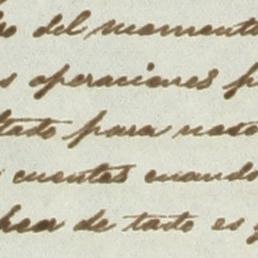 del momento
operaciones
tado para noso
cuentas cuando
de tado es